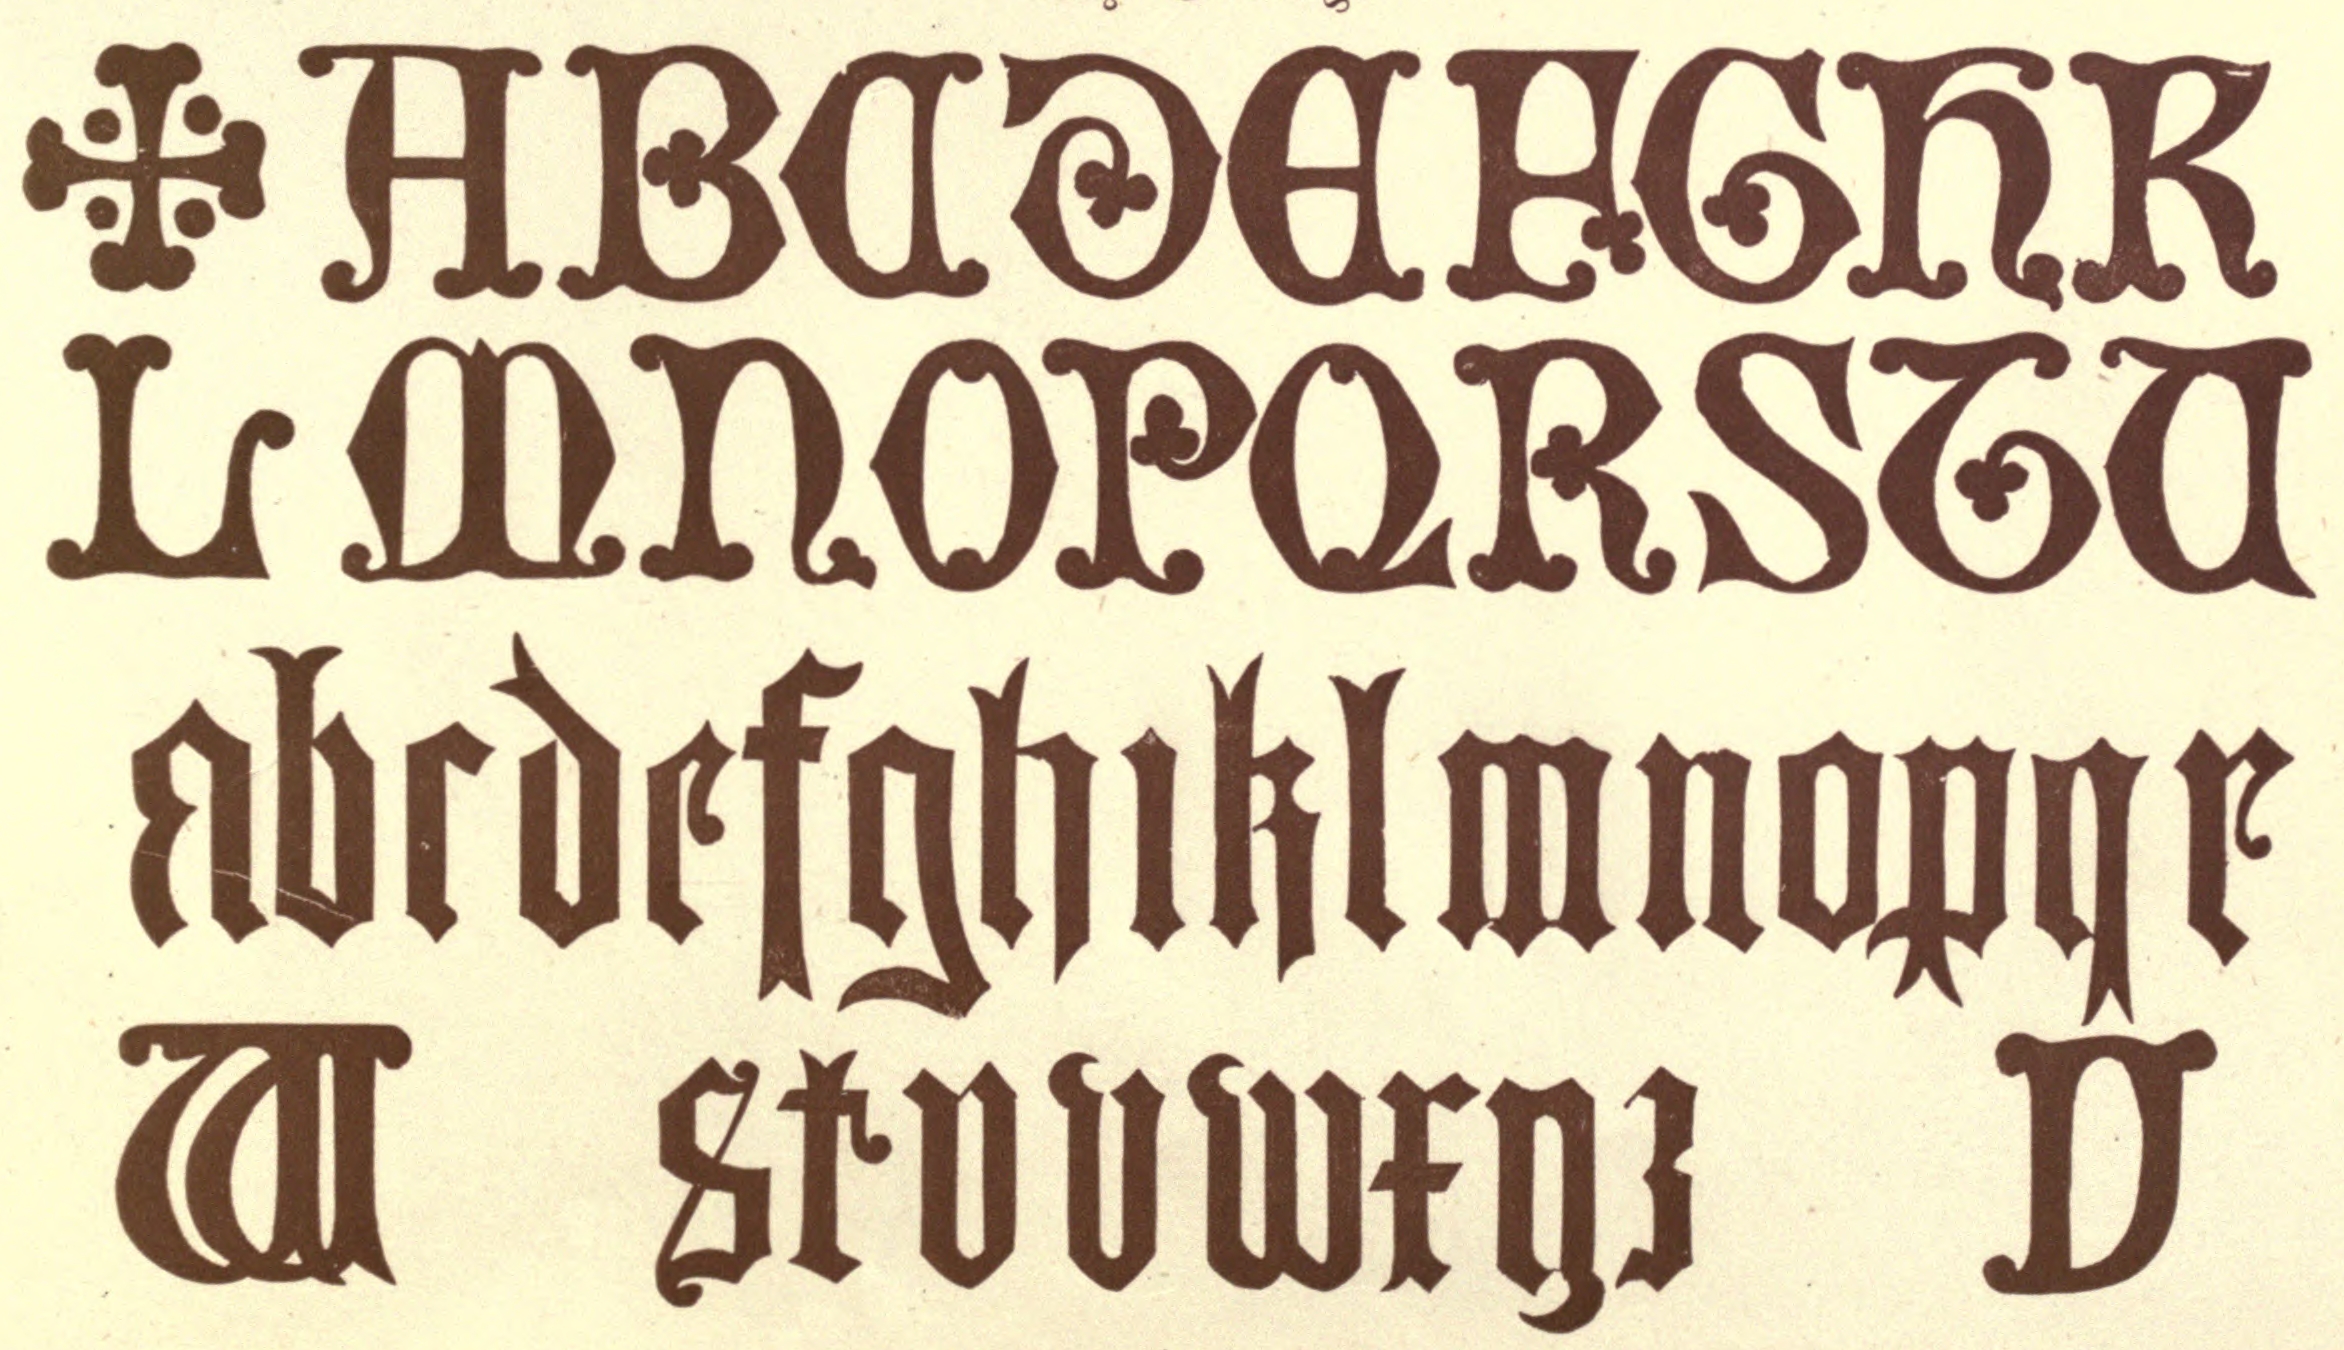 ✠ABCDEFGHK
LMNOPQRSTU
abcdefghiklmnopqr
W stuvwxyz V